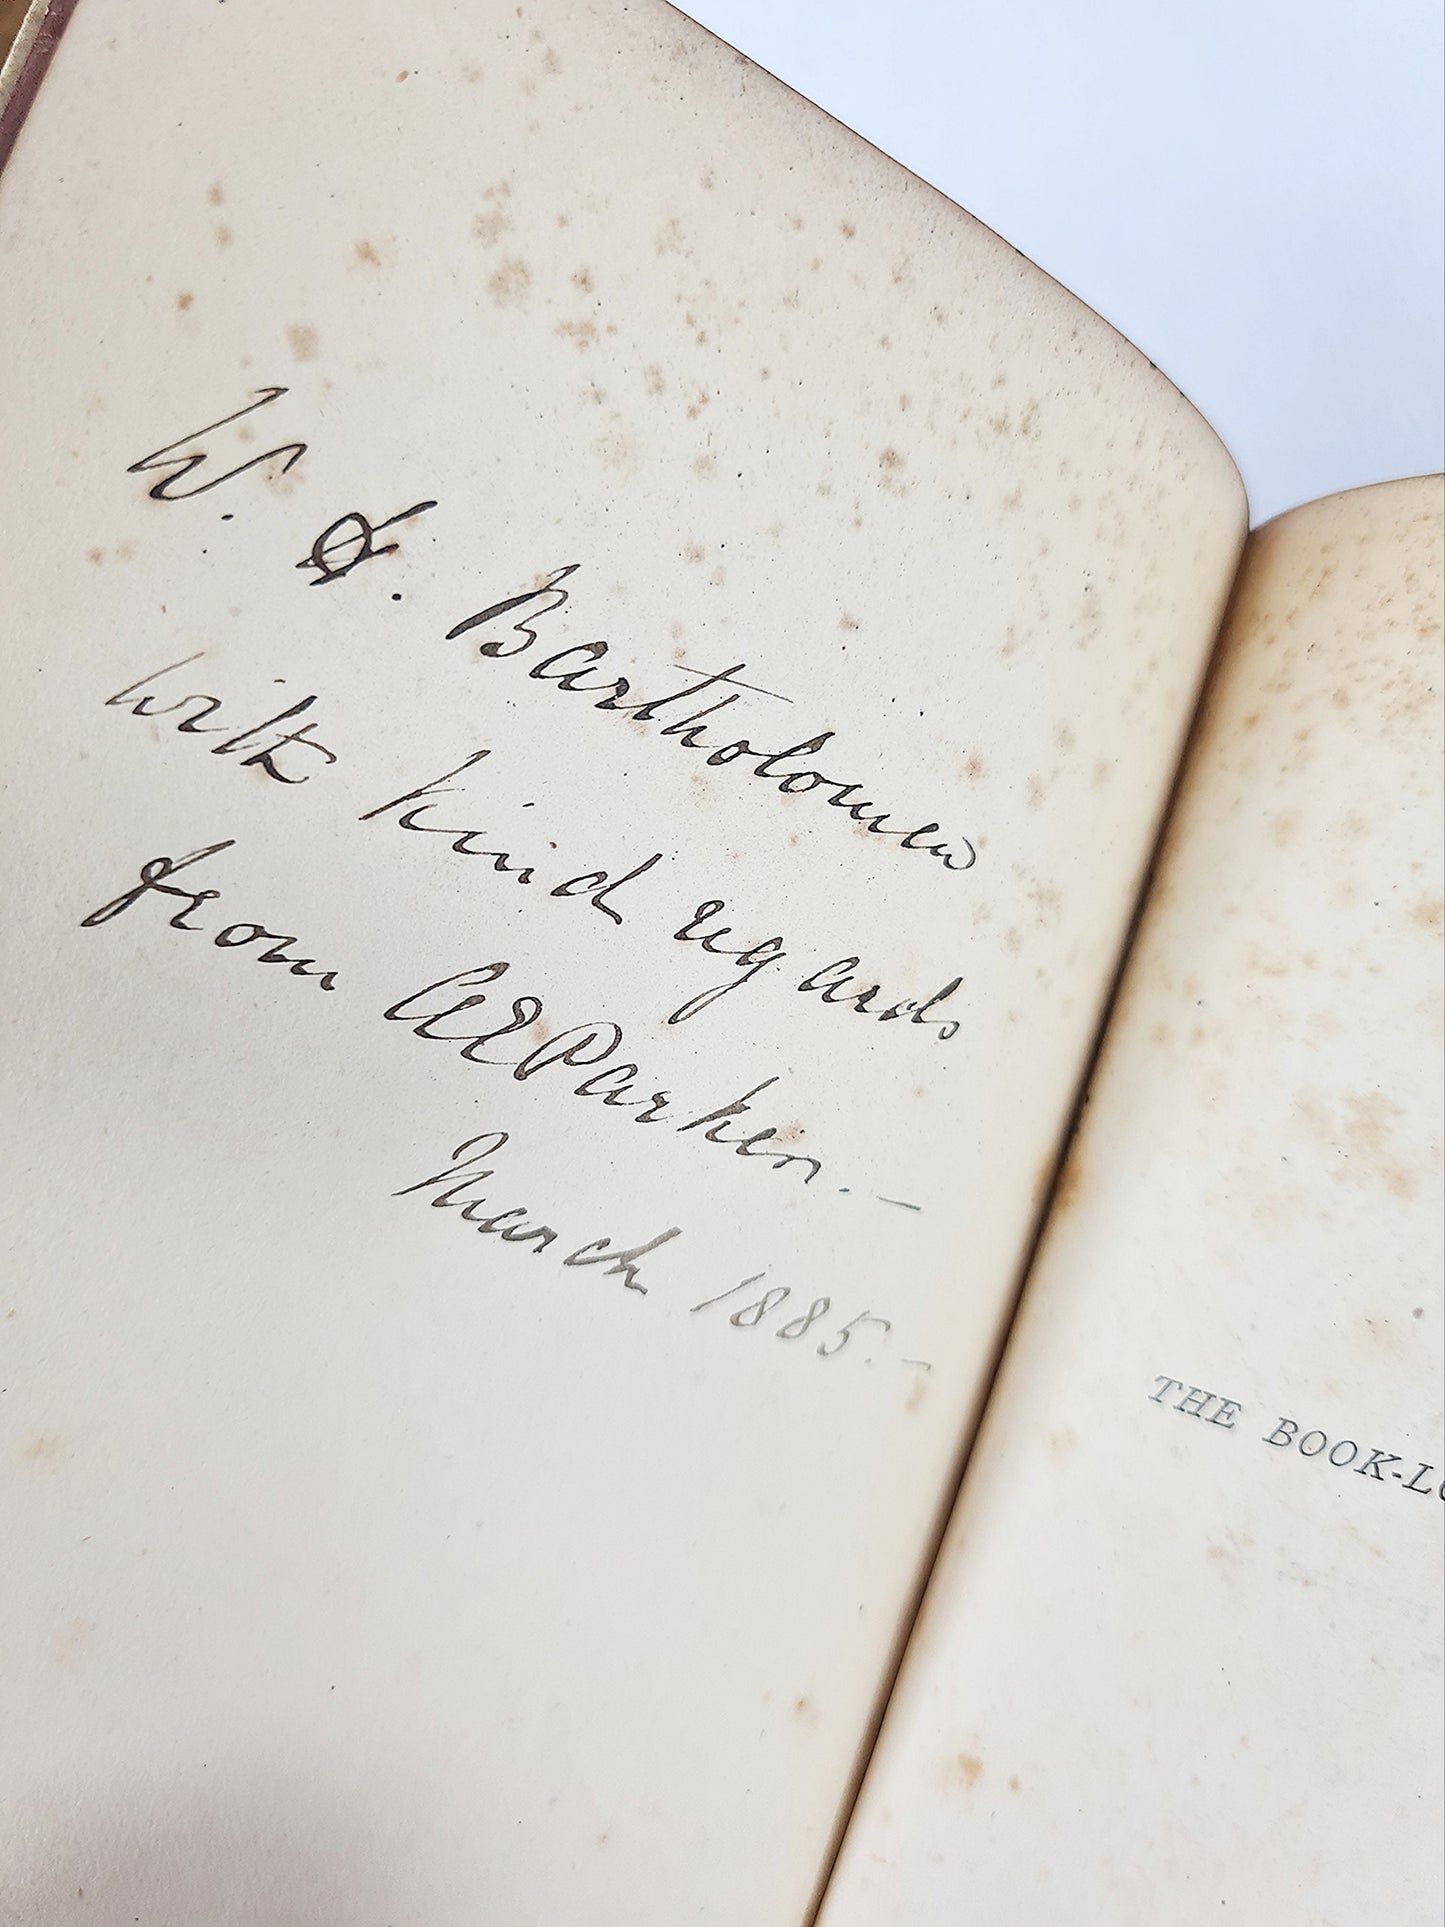 W. . Bartholomew
with kind regards
from AEParker. —
March 1885. —
THE BOOK-L